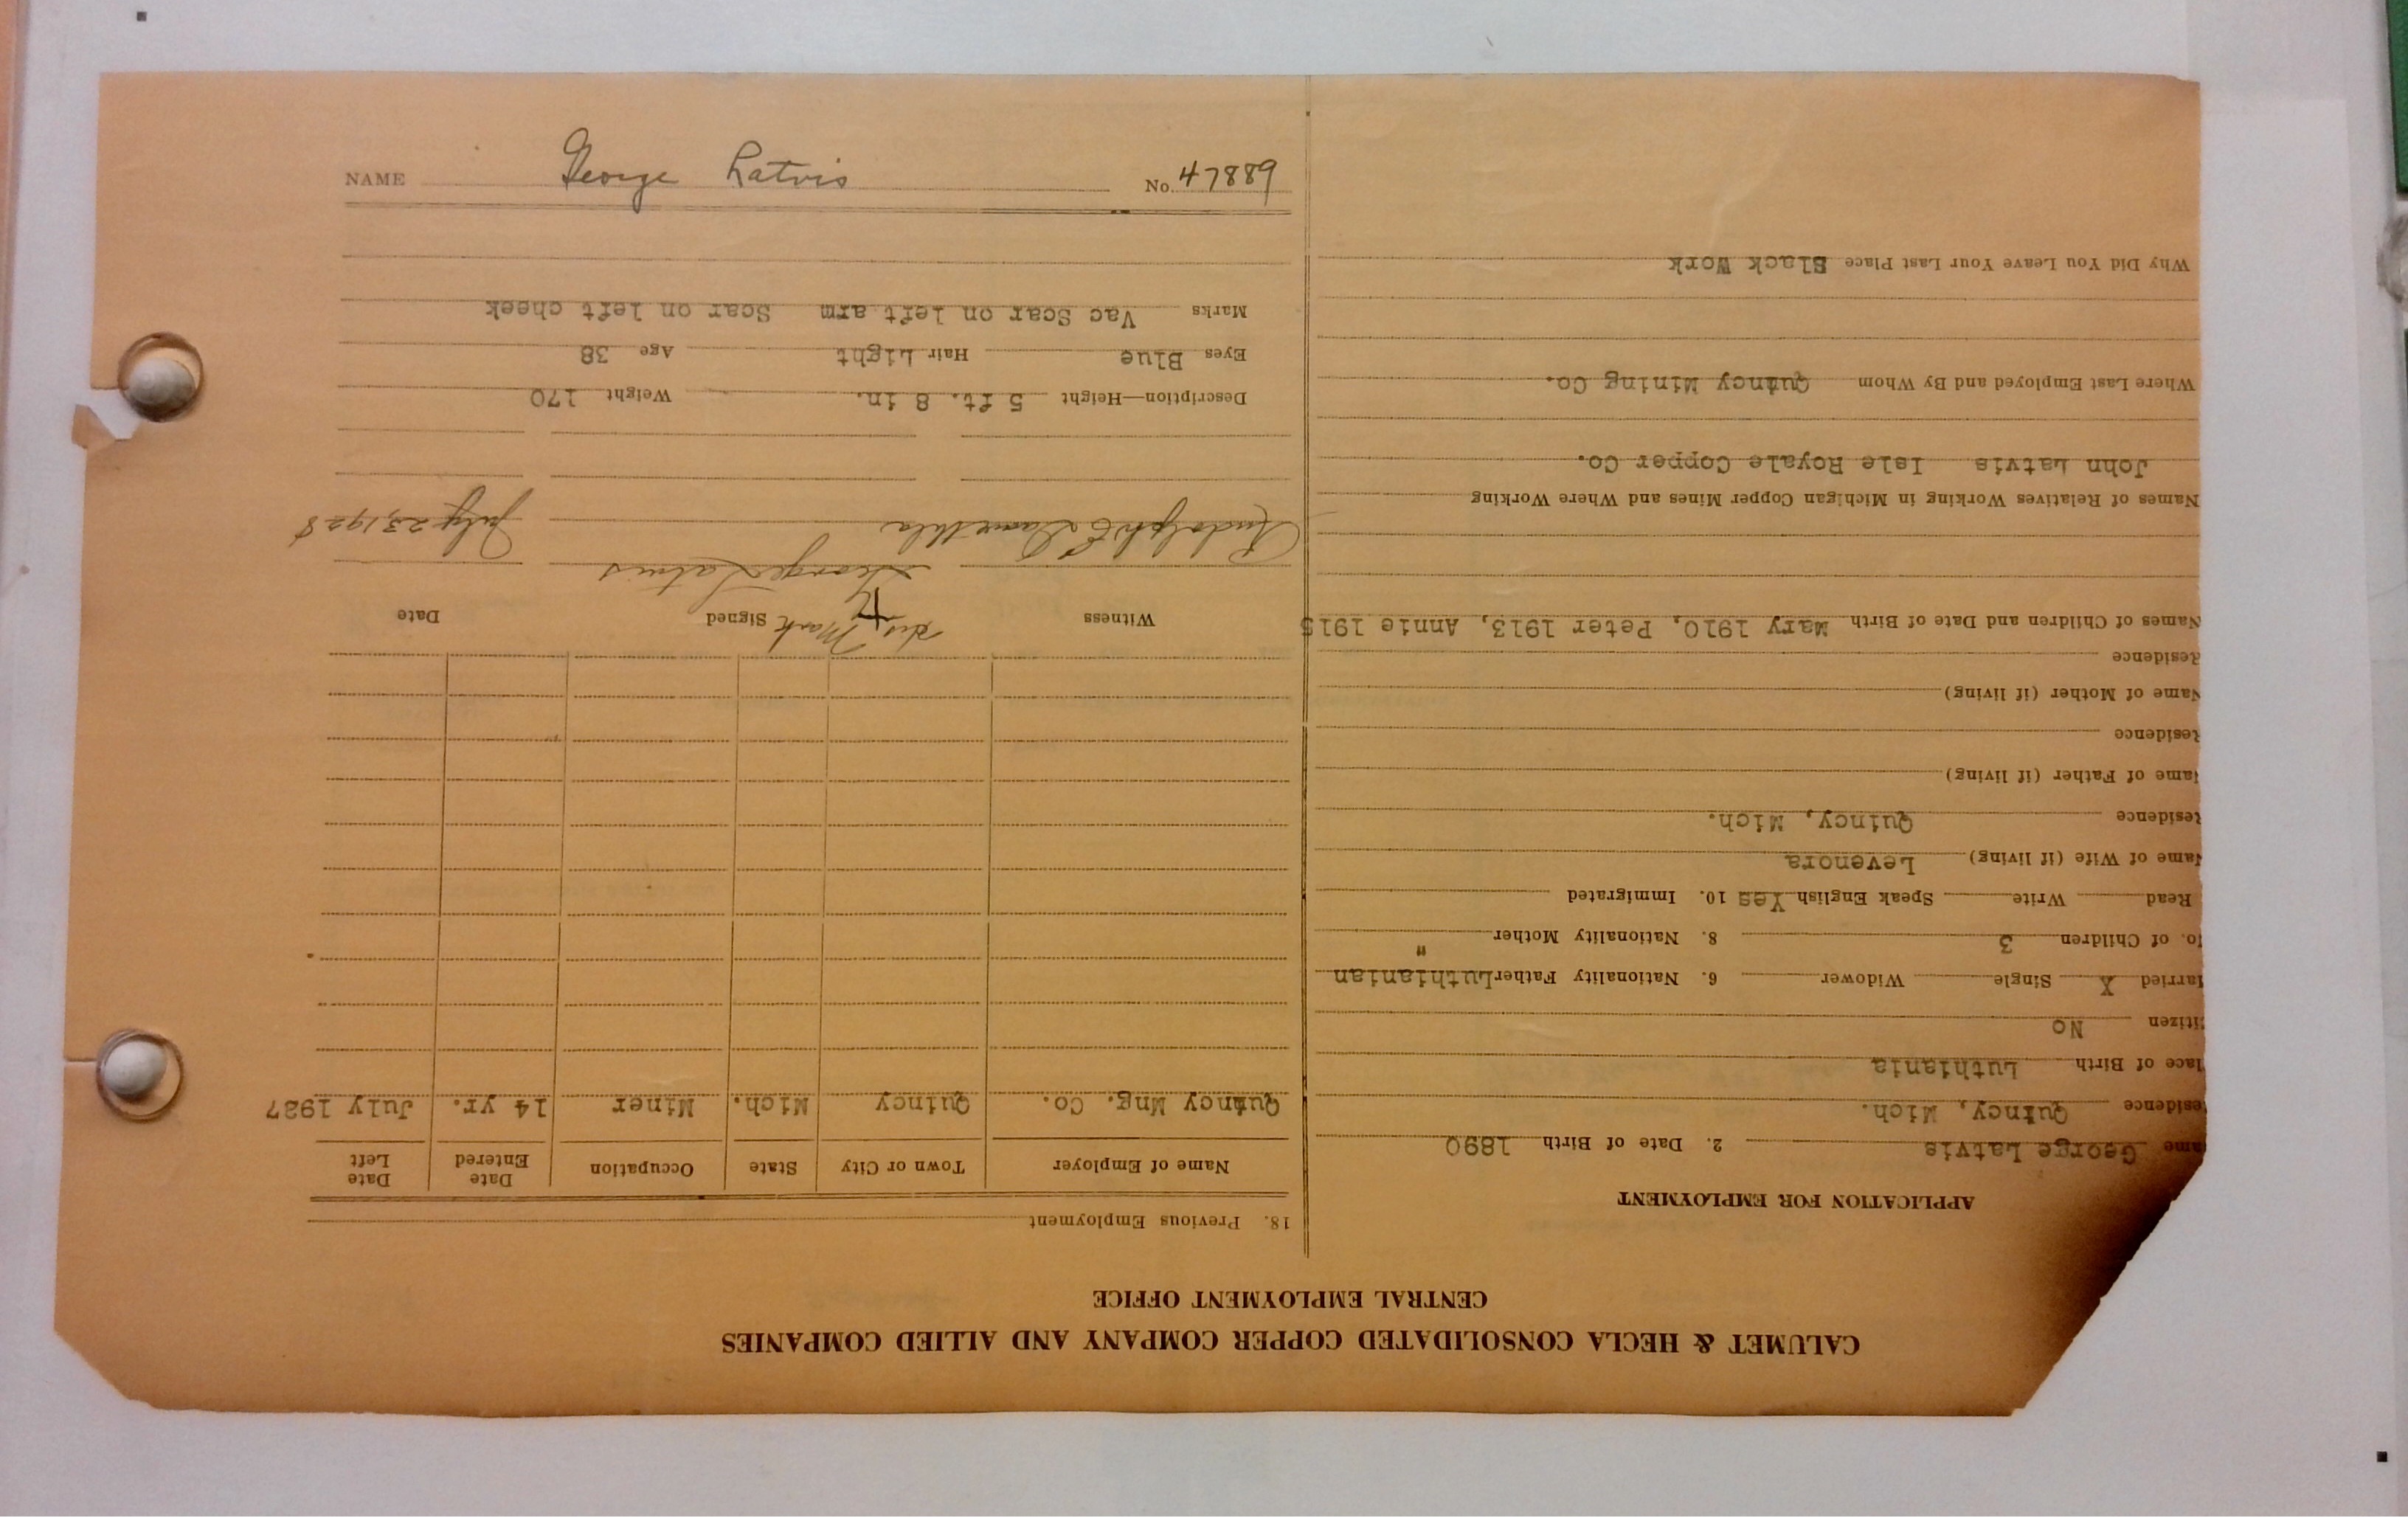 CALUMET & HECLA CONSOLIDATED COPPER COMPANY AND ALLIED COMPANIES
CENTRAL EMPLOYMENT OFFICE
APPLICATION FOR EMPLOYMENT
ame George Latvis 2. Date of Birth 1890
esidence Quincy, Mich.
lace of Birth Luthiania
itizen No
arried X Single Widower 6. Nationality Father Luthianian
o. of Children 3 8. Nationality Mother "
Read Write Speak English Yes 10. Immigrated
ame of Wife (if living) Levenora
Residence Quincy, Mich.
ame of Father (if living)
Residence
Name of Mother (if living)
Residence
Names of Children and Date of Birth Mary 1910, Peter 1913, Annie 1915
Names of Relatives Working in Michigan Copper Mines and Where Working
John Latvis Isle Royale Copper Co.
Where Last Employed and By Whom Quincy Mining Co.
Why Did You Leave Your Last Place Slack Work
18. Previous Employment
Name of Employer Town or City State Occupation Date Entered Date Left
Quincy Mng. Co. Quincy Mich. Miner 14 yr. July 1927
his Mark
Witness Signed Date
George Latvis
Rudolph E July 23, 1928
Description—Height 5 ft. 8 in. Weight 170
Eyes Blue Hair Light Age 38
Marks Vac Scar on left arm Scar on left cheek
NAME George Latvis No. 47889